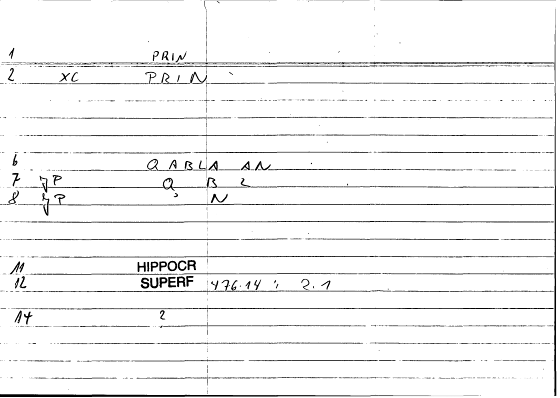 1 PRIN
2 XC PRIN
6 QABLA AN
7 P Q B L
8 P , N
11 HIPPOCR
12 SUPERF 476.14 ; 2.1
14 2